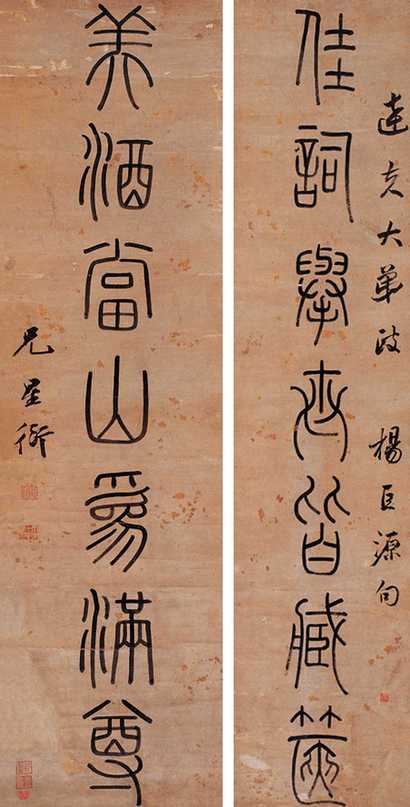 大弟政 楊巨源句
佳詞舉世皆藏篋
美酒當山為滿尊
兄星衍